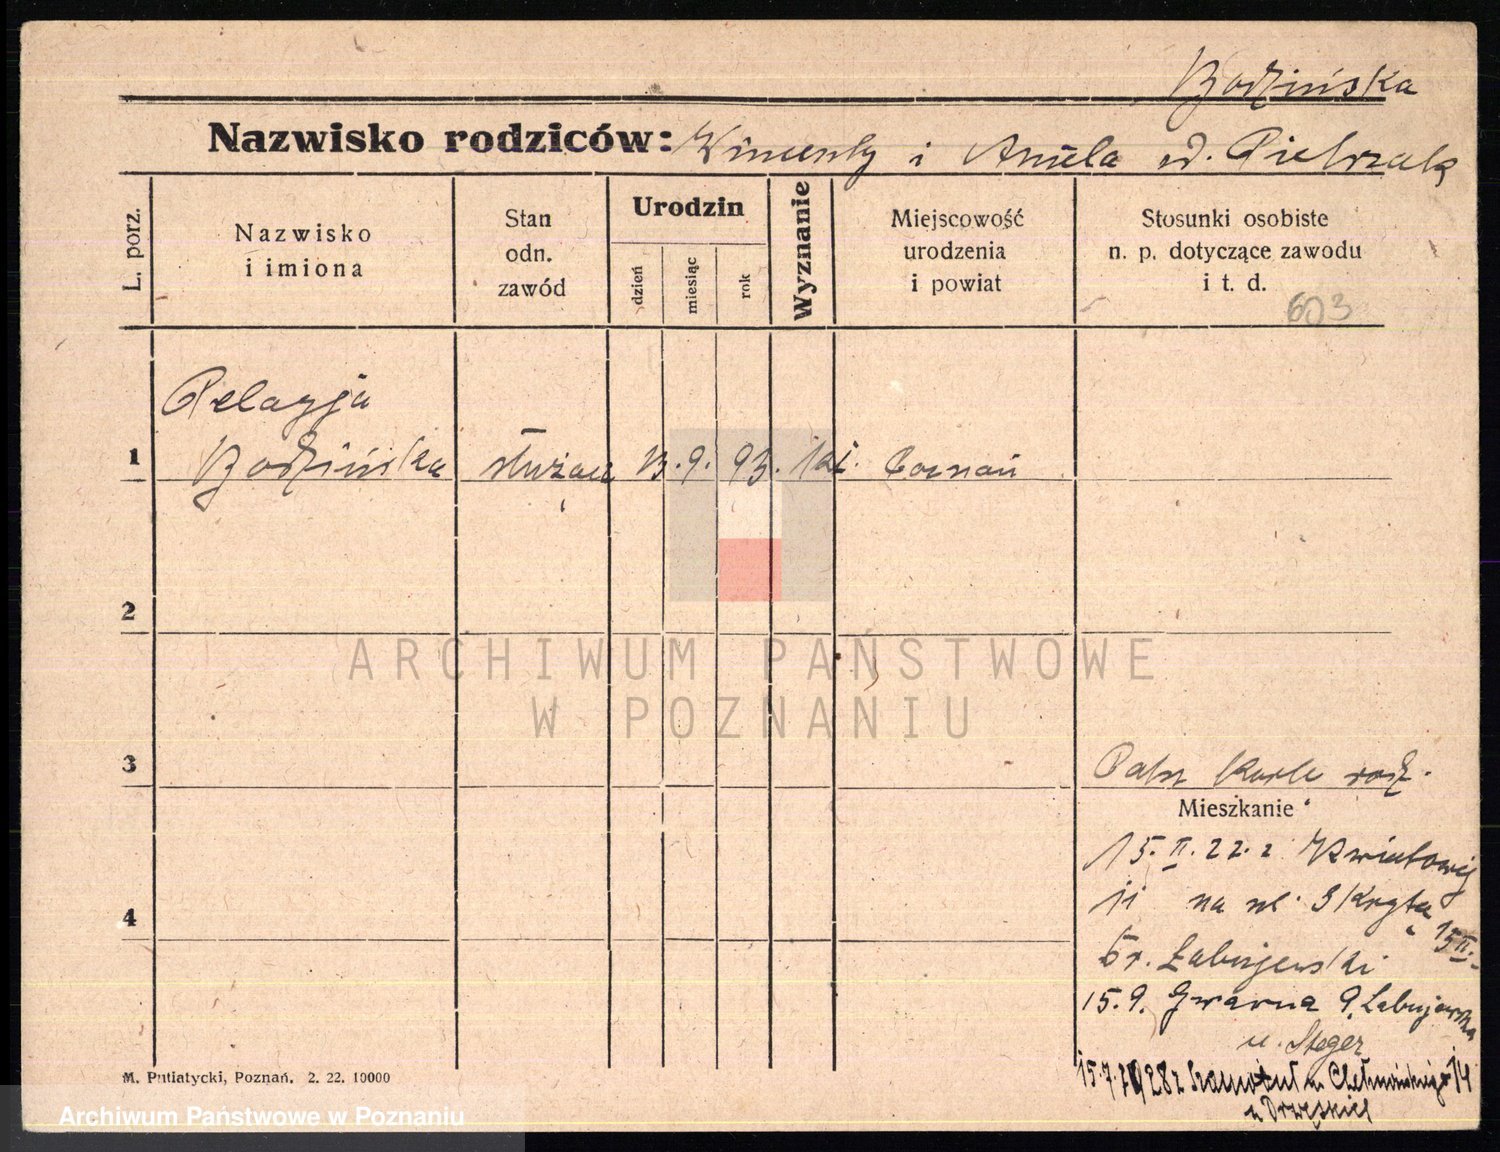 Bodzińska
Nazwisko rodziców: Wincenty i Aniela Pietrzak
L. porz.
Nazwisko
i imiona
Stan
odn.
zawód
Urodzin
dzień
miesiąc
rok
Wyznanie
Miejscowość
urodzenia
i powiat
Stosunki osobiste
n. p. dotyczące zawodu
i t. d.
603
Pelagja
1 Bodzińska służąca 13. 9. 93. kat. Poznań
2
3
Patrz
Mieszkanie
15. II. 22. z Kwiatowej
11 na ul. Skryta
15 II.
br. Łabujewski
15. 9. Gwarna 9. Łabujewska
u. Steger
15.7. 28 z Szamotuł Chełmońskiego 14
4
M. Putiatycki, Poznań. 2. 22. 10000
ARCHIWUM PAŃSTWOWE
W POZNANIU
Archiwum Państwowe w Poznaniu